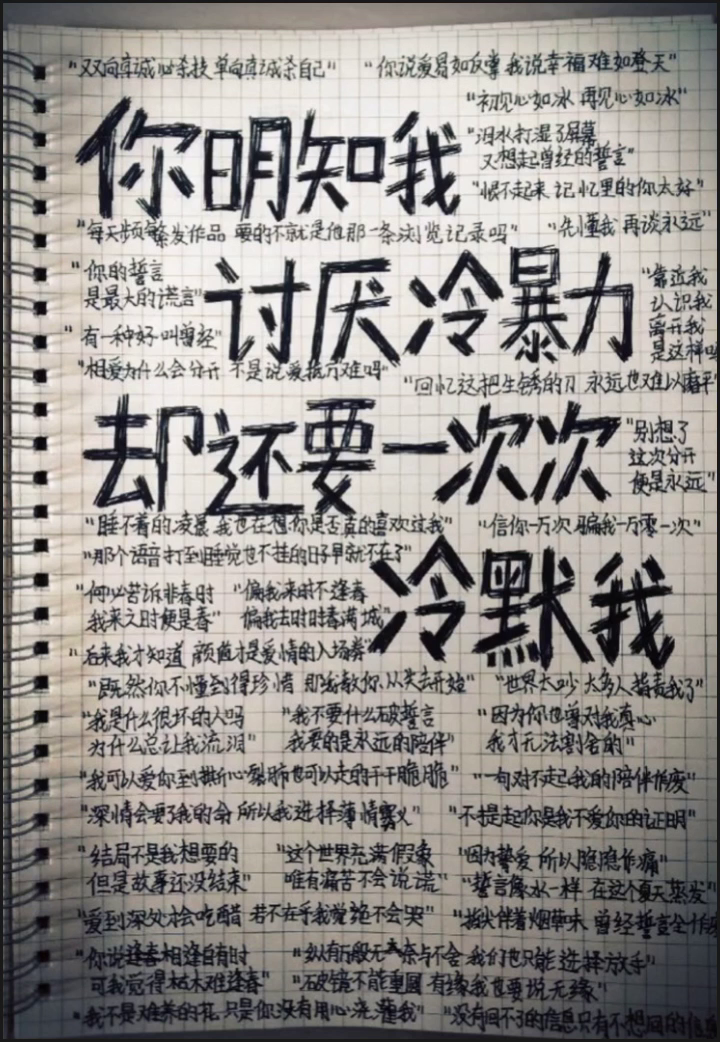 "双向真诚必杀技 单向真诚杀自己" "你说爱易如反掌 我说幸福难如登天"
"初见心如冰 再见心如冰"
你明知我
"泪水打湿了屏幕
又想起曾经的誓言"
"恨不起来 记忆里的你太好"
"每天频繁发作品 要的不就是他那一条浏览记录吗" "先懂我 再谈永远"
"你的誓言
是最大的谎言"
讨厌冷暴力
"靠近我
认识我
离开我
是这样吗
"有一种好 叫曾经"
"相爱为什么会分开 不是说爱抵万难吗"
"回忆这把生锈的刀 永远也难以磨平"
却还要一次次
"别想了
这次分开
便是永远"
"睡不着的凌晨 我也在想 你是否真的喜欢过我" "信你一万次 骗我一万零一次"
"那个语音打到睡觉也不挂的日子早就不在了"
冷默我
"何必苦诉非春时
我来之时便是春"
"偏我来时不逢春
偏我去时时春满城"
"后来我才知道 颜值才是爱情的入场券"
"既然你不懂到得珍惜 那我教你从失去开始" "世界太吵 太多人指责我了"
"我是什么很坏的人吗
为什么总让我流泪"
"我不要什么破誓言
我要的是永远的陪伴"
"因为你也曾对我真心
我才无法割舍的"
"我可以爱你到撕心裂肺也可以走的干干脆脆" "一句对不起我的陪伴作废"
"深情会要了我的命 所以我选择薄情寡义" "不提起你是我不爱你的证明"
"结局不是我想要的
但是故事还没结束"
"这个世界充满假象
唯有痛苦不会说谎"
"因为挚爱 所以隐隐作痛"
"誓言像水一样 在这个夏天蒸发"
"爱到深处才会吃醋 若不在乎我觉绝不会哭" "指尖伴着烟草味 曾经誓言全作废
"你说逢春相逢自有时
可我觉得枯木难逢春"
"纵有万般无奈与不舍 我们也只能选择放手"
"破镜不能重圆 有缘我也要说无缘"
"我不是难养的花 只是你没有用心浇灌我" "没有回不了的信息只有不想回的信息